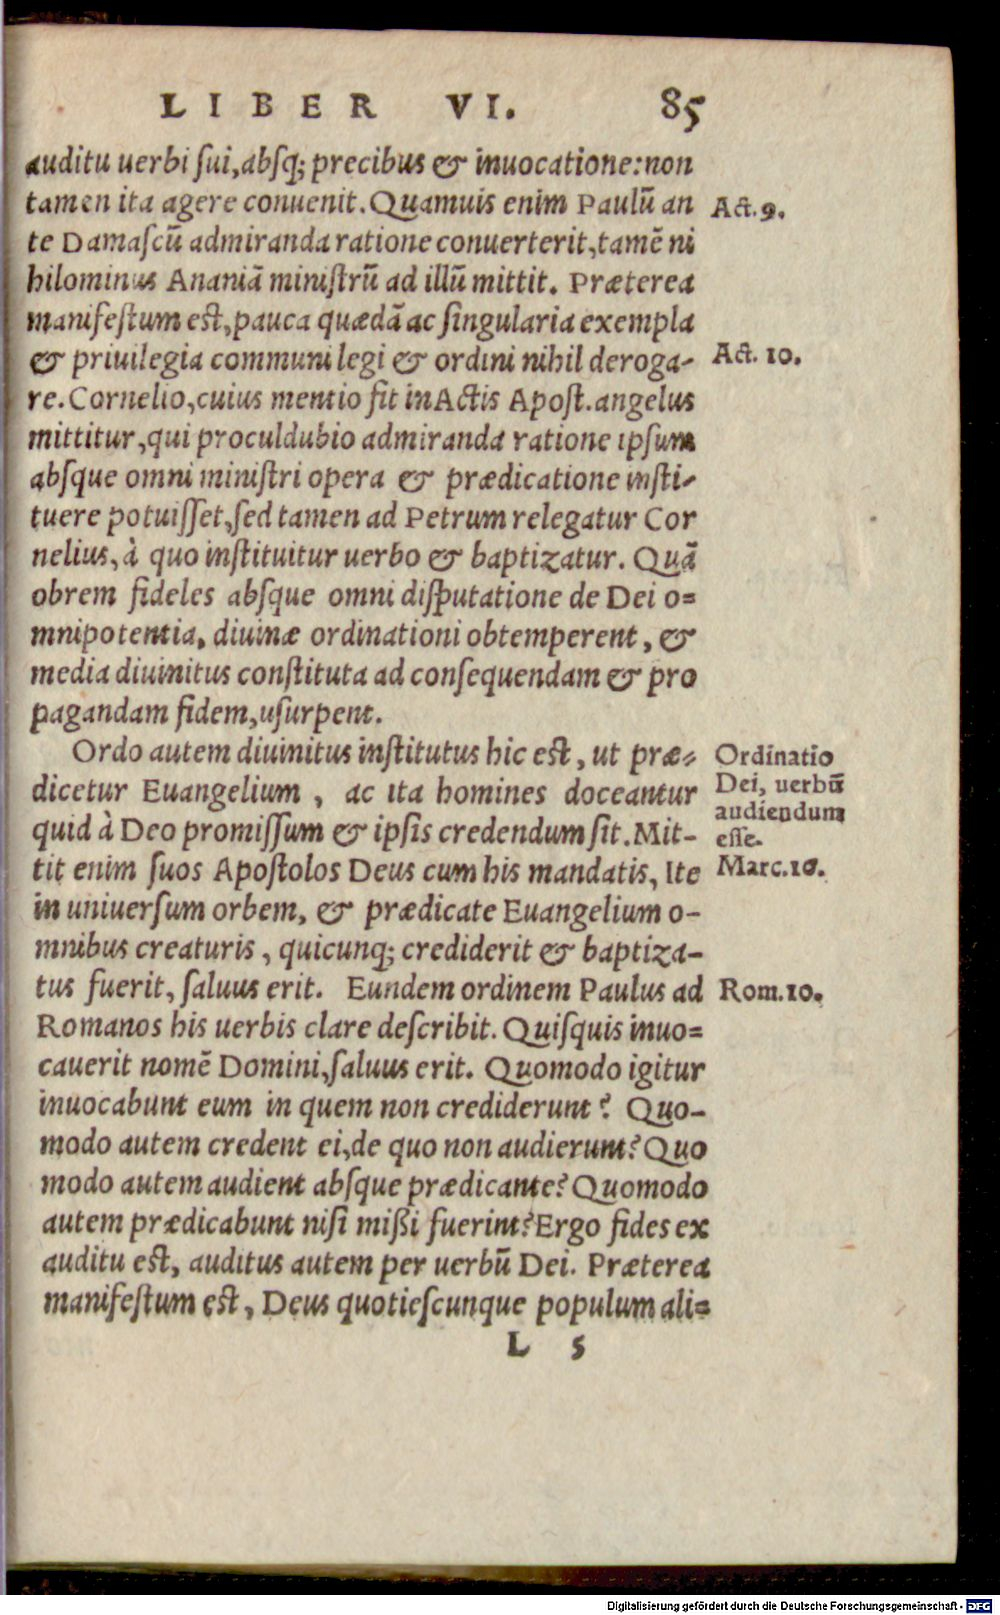 LIBER VI. 85
auditu uerbi sui, absq; precibus & inuocatione: non
tamen ita agere conuenit. Quamuis enim Paulū an
Act. 9.
te Damascū admiranda ratione conuerterit, tamē ni
hilominus Ananiā ministrū ad illū mittit. Præterea
manifestum est, pauca quædā ac singularia exempla
& priuilegia communi legi & ordini nihil deroga-
Act. 10.
re. Cornelio, cuius mentio fit in Actis Apost. angelus
mittitur, qui proculdubio admiranda ratione ipsum
absque omni ministri opera & prædicatione insti-
tuere potuisset, sed tamen ad Petrum relegatur Cor
nelius, à quo instituitur uerbo & baptizatur. Quā
obrem fideles absque omni disputatione de Dei o=
mnipotentia, diuinæ ordinationi obtemperent, &
media diuinitus constituta ad consequendam & pro
pagandam fidem, usurpent.
Ordo autem diuinitus institutus hic est, ut præ=
dicetur Euangelium, ac ita homines doceantur
quid à Deo promissum & ipsis credendum sit. Mit-
Ordinatio
Dei, uerbū
audiendum
esse.
tit enim suos Apostolos Deus cum his mandatis, Ite
Marc. 16.
in uniuersum orbem, & prædicate Euangelium o-
mnibus creaturis, quicunq; crediderit & baptiza-
tus fuerit, saluus erit. Eundem ordinem Paulus ad
Rom. 10.
Romanos his uerbis clare describit. Quisquis inuo=
cauerit nomē Domini, saluus erit. Quomodo igitur
inuocabunt eum in quem non crediderunt? Quo-
modo autem credent ei, de quo non audierunt? Quo
modo autem audient absque prædicante? Quomodo
autem prædicabunt nisi mißi fuerint? Ergo fides ex
auditu est, auditus autem per uerbū Dei. Præterea
manifestum est, Deus quotiescunque populum ali=
L 5
Digitalisierung gefördert durch die Deutsche Forschungsgemeinschaft - DFG